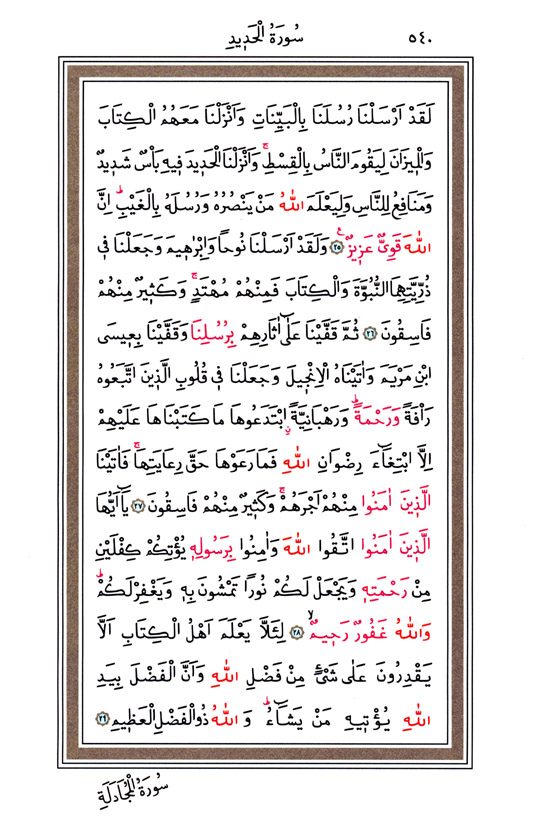 ٥٤٠
سُورَةُ الْحَدِيدِ
لَقَدْ اَرْسَلْنَا رُسُلَنَا بِالْبَيِّنَاتِ وَاَنْزَلْنَا مَعَهُمُ الْكِتَابَ
وَالْمِيزَانَ لِيَقُومَ النَّاسُ بِالْقِسْطِۚ وَاَنْزَلْنَا الْحَدِيدَ فِيهِ بَأْسٌ شَدِيدٌ
وَمَنَافِعُ لِلنَّاسِ وَلِيَعْلَمَ اللّٰهُ مَنْ يَنْصُرُهُ وَرُسُلَهُ بِالْغَيْبِۜ اِنَّ
اللّٰهَ قَوِيٌّ عَزِيزٌ۟ ﴿٢٥﴾ وَلَقَدْ اَرْسَلْنَا نُوحًا وَاِبْرٰهِيمَ وَجَعَلْنَا فِي
ذُرِّيَّتِهِمَا النُّبُوَّةَ وَالْكِتَابَ فَمِنْهُمْ مُهْتَدٍۚ وَكَثِيرٌ مِنْهُمْ
فَاسِقُونَ ﴿٢٦﴾ ثُمَّ قَفَّيْنَا عَلٰٓى اٰثَارِهِمْ بِرُسُلِنَا وَقَفَّيْنَا بِعِيسَى
ابْنِ مَرْيَمَ وَاٰتَيْنَاهُ الْاِنْجِيلَ وَجَعَلْنَا فِي قُلُوبِ الَّذِينَ اتَّبَعُوهُ
رَأْفَةً وَرَحْمَةًۜ وَرَهْبَانِيَّةًۨ ابْتَدَعُوهَا مَا كَتَبْنَاهَا عَلَيْهِمْ
اِلَّا ابْتِغَٓاءَ رِضْوَانِ اللّٰهِ فَمَا رَعَوْهَا حَقَّ رِعَايَتِهَاۚ فَاٰتَيْنَا
الَّذِينَ اٰمَنُوا مِنْهُمْ اَجْرَهُمْۚ وَكَثِيرٌ مِنْهُمْ فَاسِقُونَ ﴿٢٧﴾ يَٓا اَيُّهَا
الَّذِينَ اٰمَنُوا اتَّقُوا اللّٰهَ وَاٰمِنُوا بِرَسُولِهِ يُؤْتِكُمْ كِفْلَيْنِ
مِنْ رَحْمَتِهِ وَيَجْعَلْ لَكُمْ نُورًا تَمْشُونَ بِهِ وَيَغْفِرْ لَكُمْۜ
وَاللّٰهُ غَفُورٌ رَحِيمٌۙ ﴿٢٨﴾ لِئَلَّا يَعْلَمَ اَهْلُ الْكِتَابِ اَلَّا
يَقْدِرُونَ عَلٰى شَيْءٍ مِنْ فَضْلِ اللّٰهِ وَاَنَّ الْفَضْلَ بِيَدِ
اللّٰهِ يُؤْتِيهِ مَنْ يَشَٓاءُۜ وَاللّٰهُ ذُو الْفَضْلِ الْعَظِيمِ ﴿٢٩﴾
سُورَةُ الْمُجَادَلَةِ